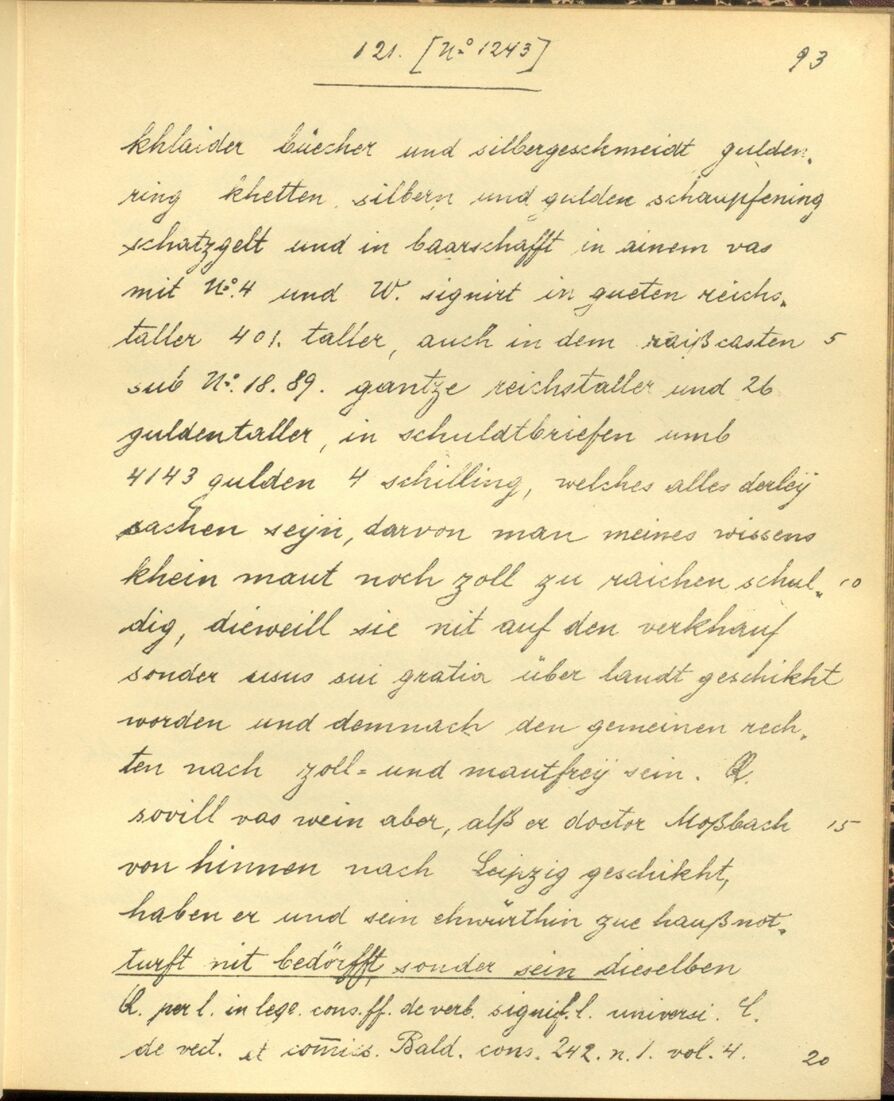 121. [No 1243] 93
khlaider büecher und silbergeschmeidt gulden.
ring khetten silbern und gulden schaupfening
schatzgelt und in baarschafft in ainem vas
mit No. 4 und W. signirt in gueten reichs.
taller 401. taller, auch in dem raißcasten 5
sub No. 18. 89. gantze reichstaller und 26
guldentaller, in schuldtbriefen umb
4143 gulden 4 schilling, welches alles derleÿ
sachen seÿn, darvon man meines wissens
khein maut noch zoll zu raichen schul. 10
dig, dieweill sie nit auf den verkhauf
sonder usus sui gratia über landt geschikht
worden und demnach den gemeinen rech.
ten nach zoll= und mautfreÿ sein. Q.
sovill vas wein aber, alß er doctor Moßbach 15
von hinnen nach Leipzig geschikht,
haben er und sein ehwürthin zue haußnot.
turft nit bedörfft, sonder sein dieselben
Q. per l. in lege. cons. ff. de verb. signif. l. universi. C.
de vect. et com̅is. Bald. cons. 242. n. 1. vol. 4. 20